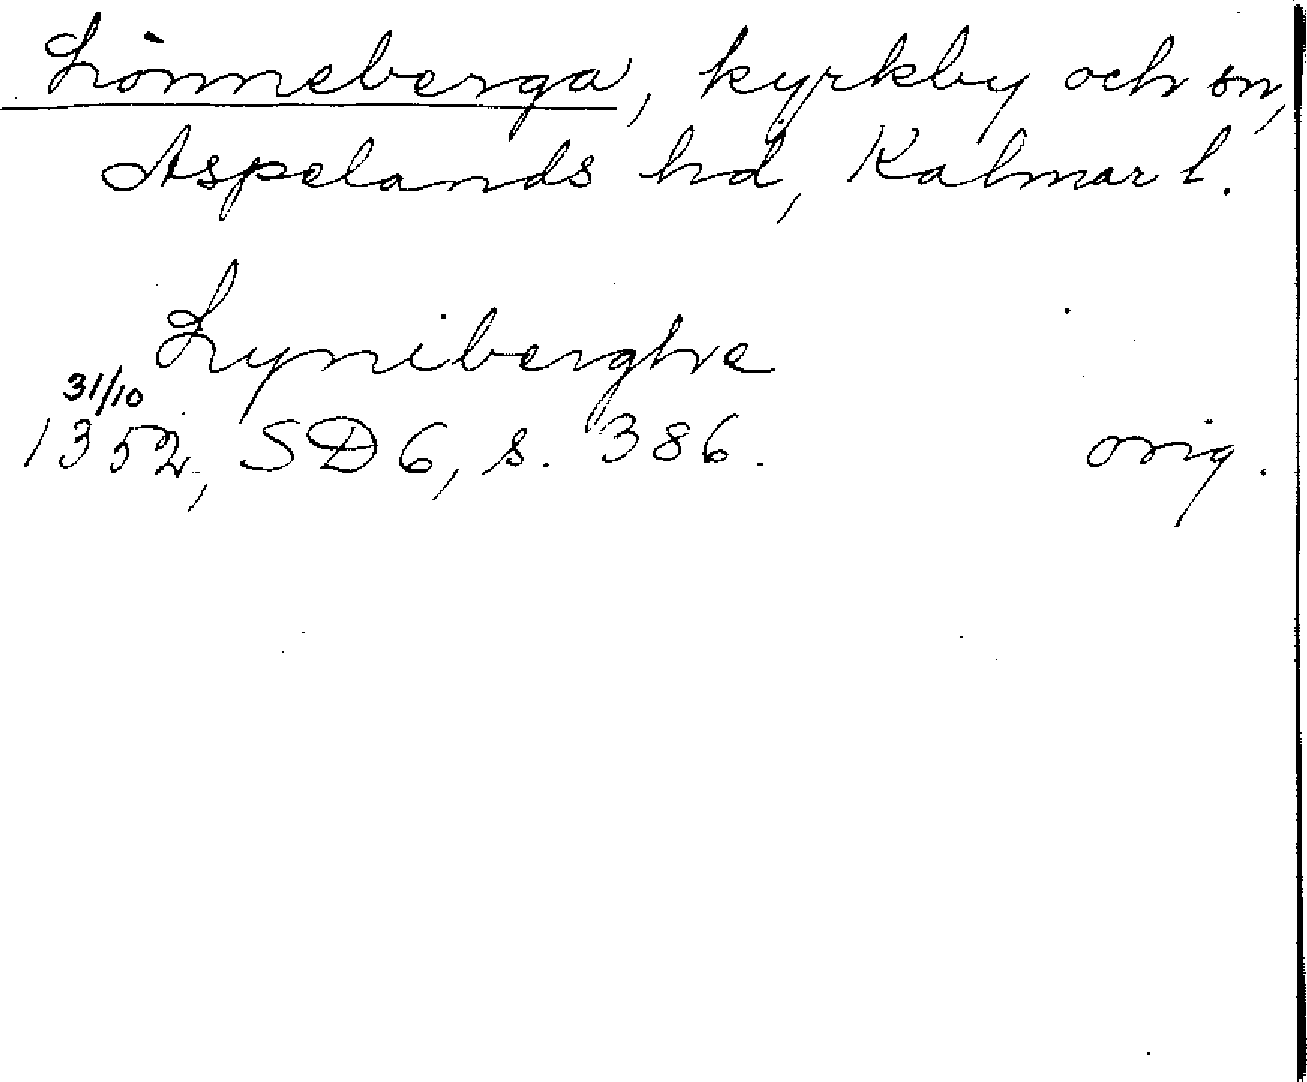 Lönneberga, kyrkby och sn,
Aspelands hd, Kalmar l.
Lyniberghe
31/10
1352, SD 6, s. 386. orig.